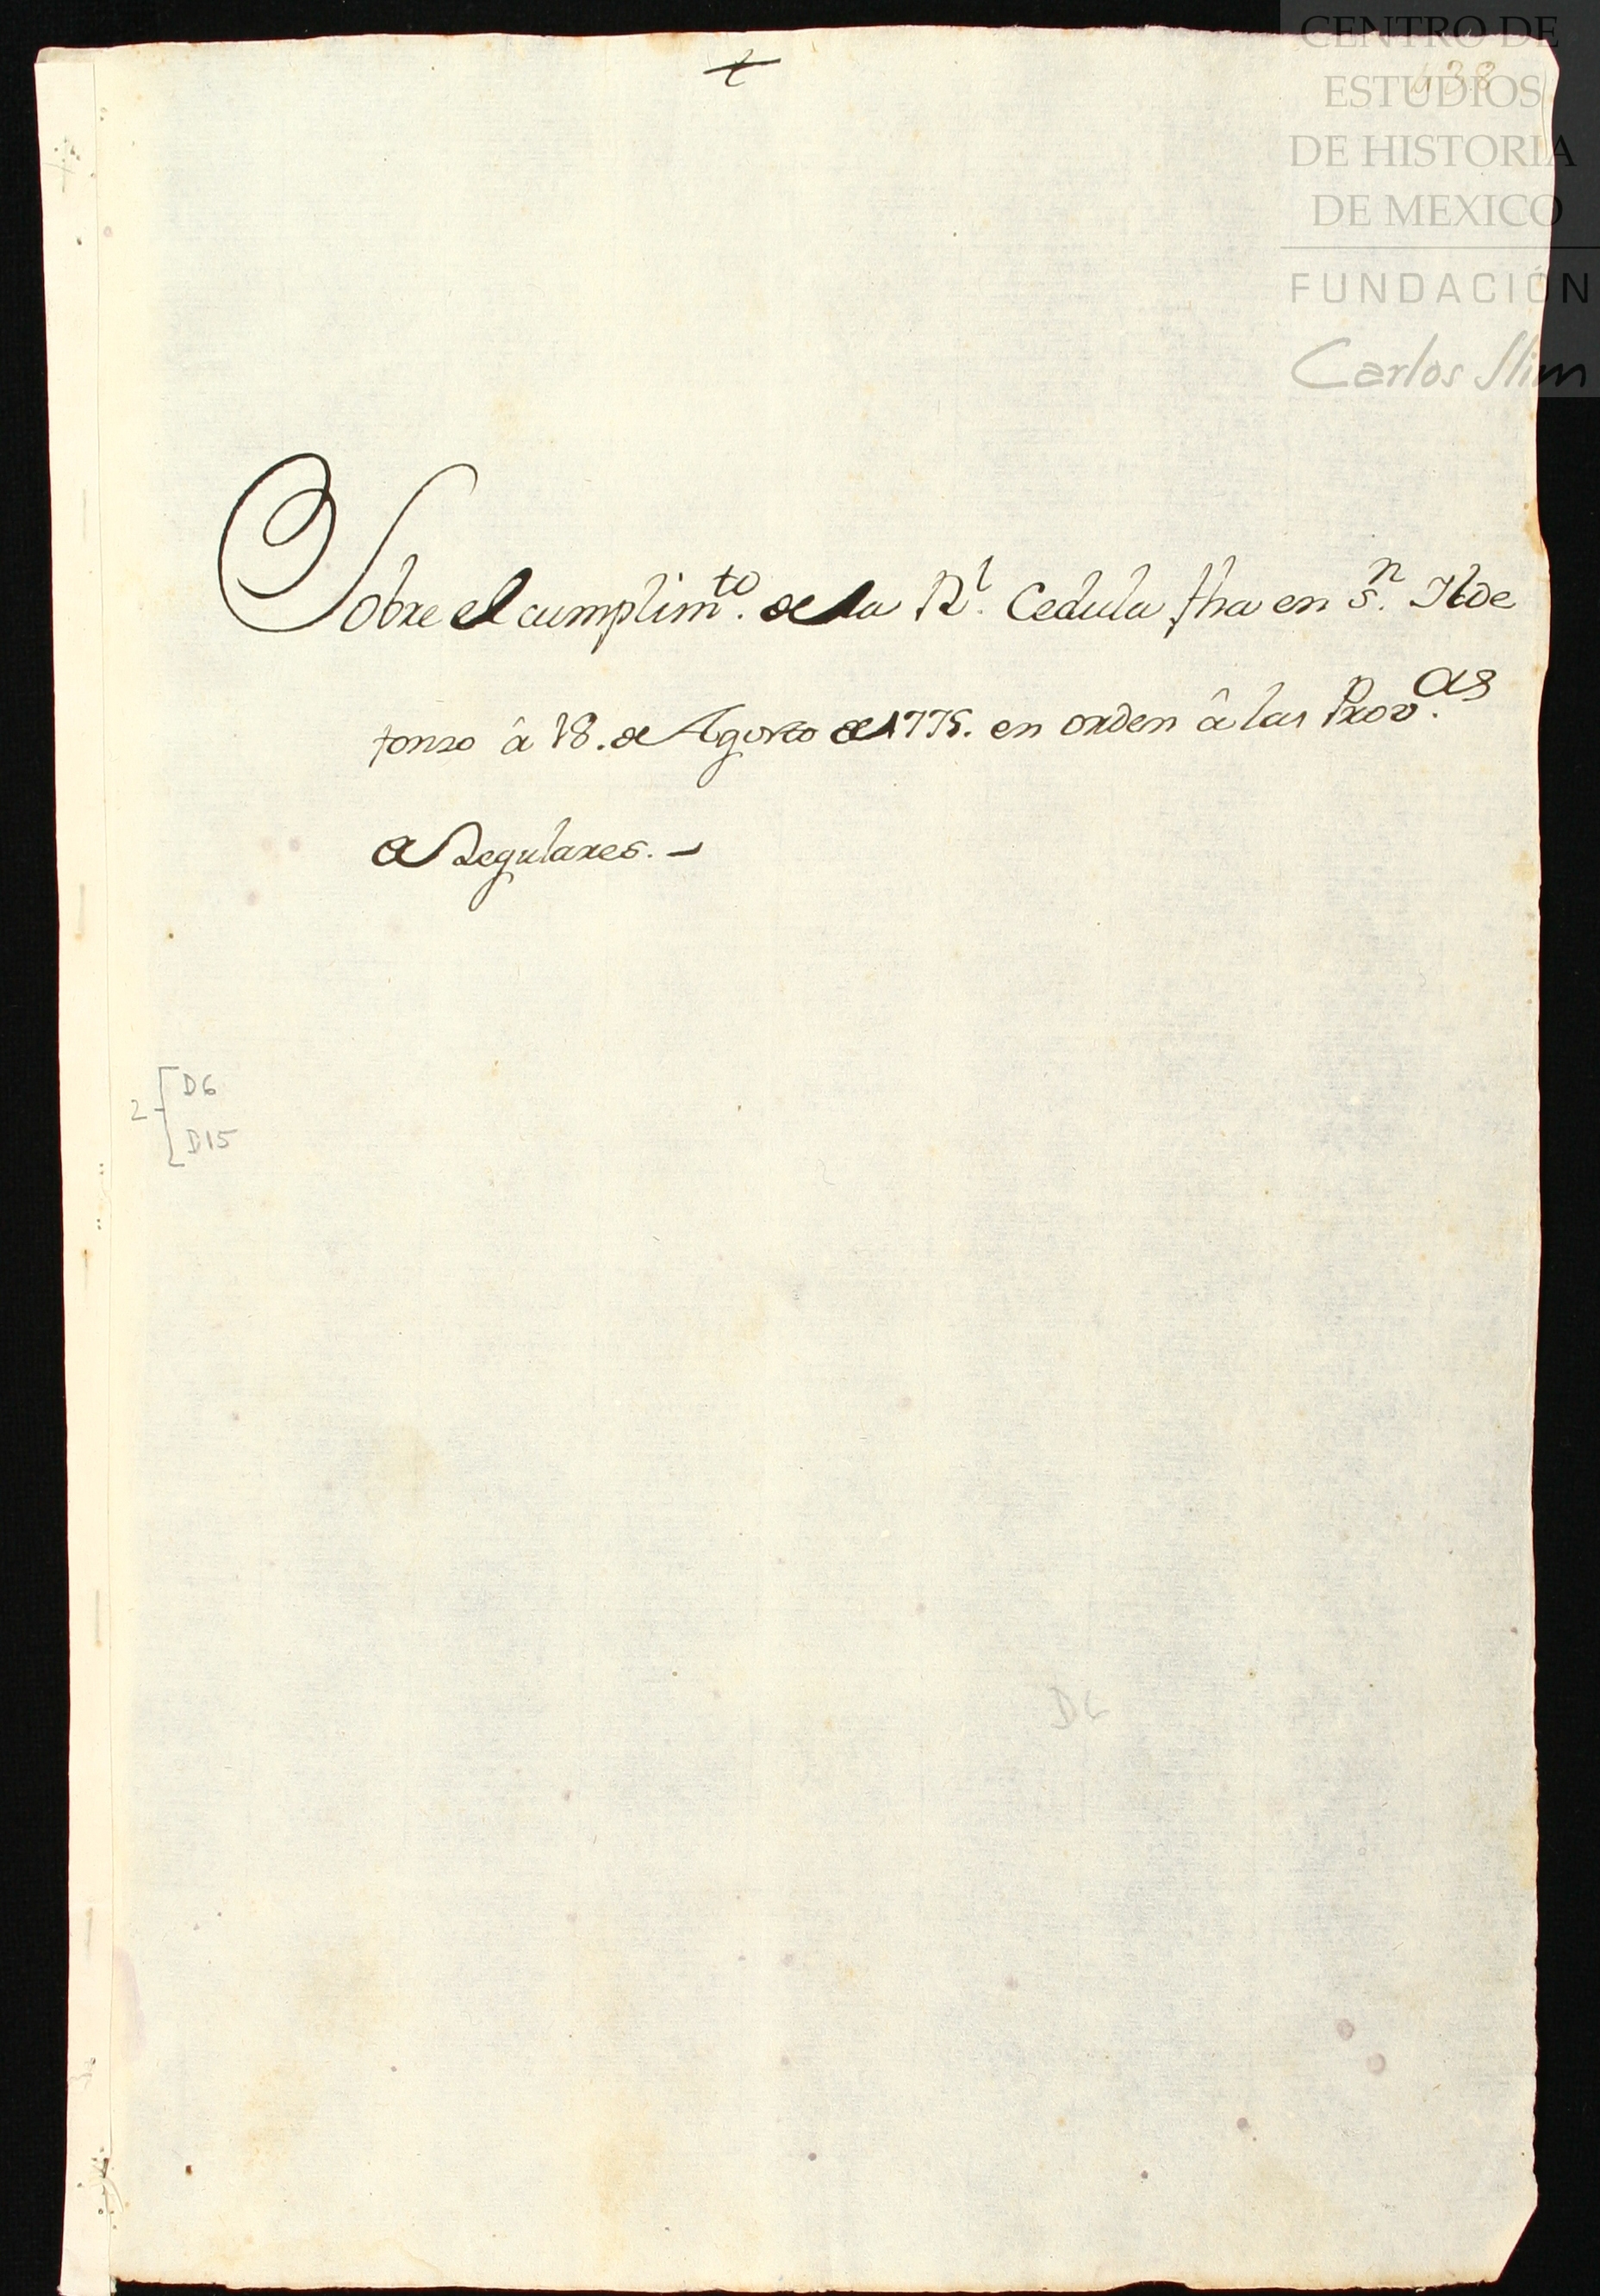 438
CENTRO DE
ESTUDIOS
DE HISTORIA
DE MEXICO
FUNDACIÓN
Carlos Slim
Sobre el cumplim.to de la R.l Cedula fha en S.n Ilde
fonso â 18. de Agosto de 1775. en orden â las Prov.as
de Regulares. -
2 [ D6
D15
D6